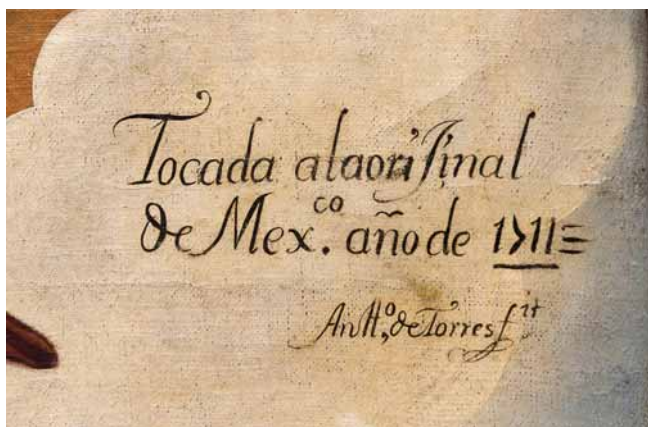 Tocada a la oriJinal
de Mex.co año de 1711=
Antto. de Torres fit